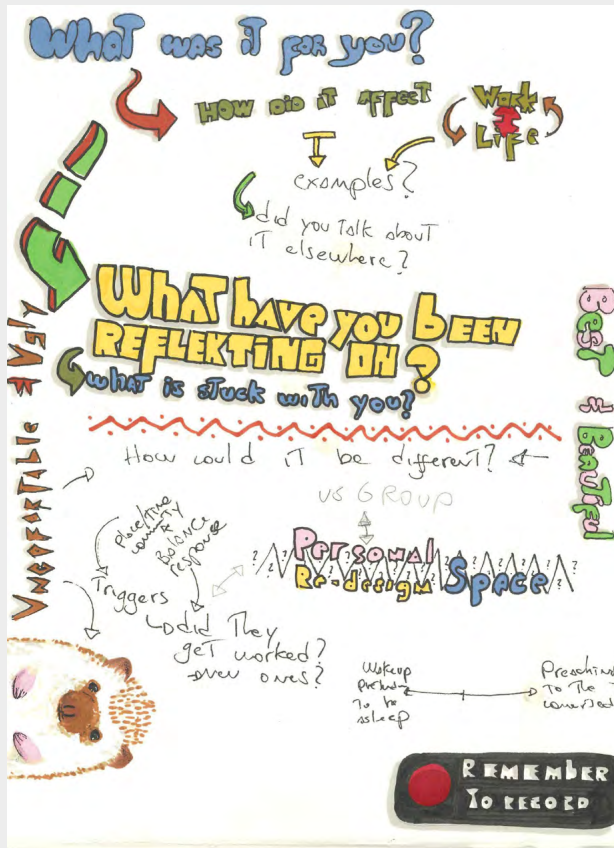 What was it for you?
How did it affect
Work
Life
examples?
did you talk about
it elsewhere?
What have you been
reflekting on?
what is stuck with you?
Best & Beautiful
Uncofortable & Ugly
How could it be different?
vs GROUP
Personal
Re-design Space
Balance
response
Triggers
did they
get worked?
new ones?
Wakeup
to be
asleep
Preaching
to the
REMEMBER
TO RECORD